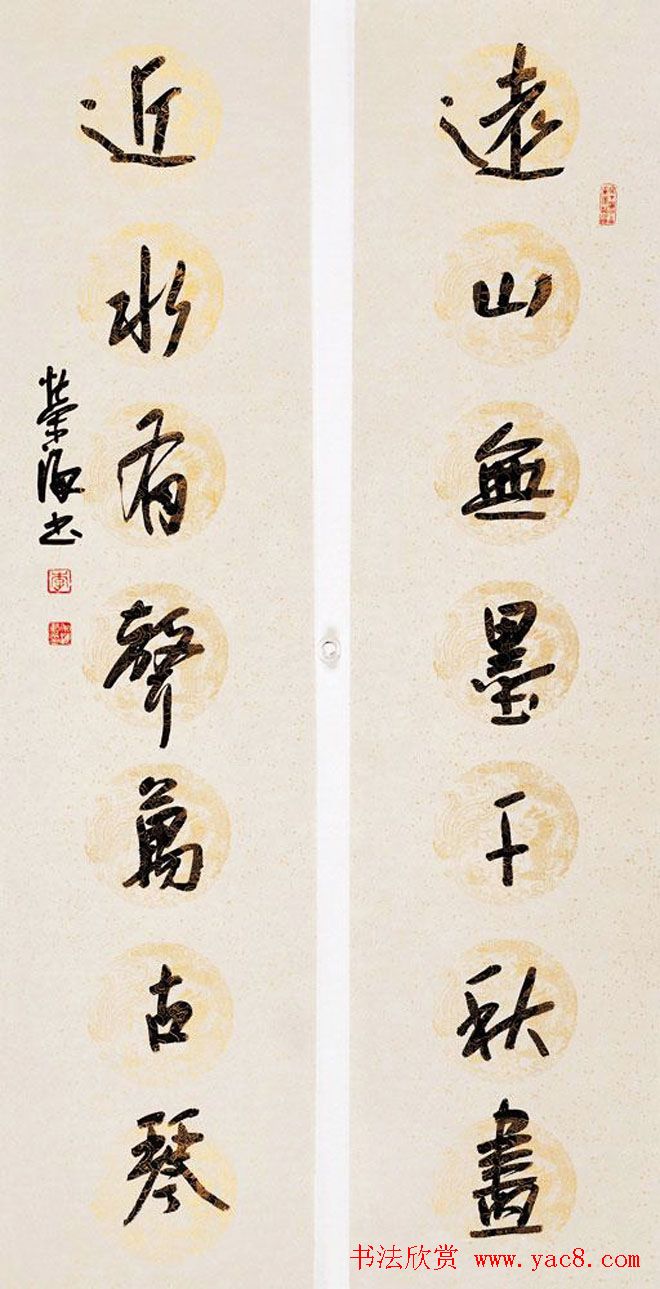 遠山無墨千秋畫
近水有聲萬古琴
榮海書
书法欣赏 www.yac8.com